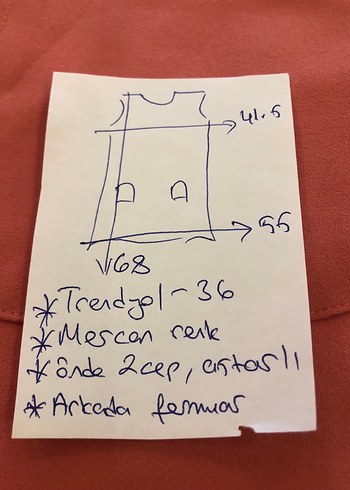 41.5
55
68
* Trendyol - 36
* Mercan renk
* Önde 2 cep, astarlı
* Arkada fermuar